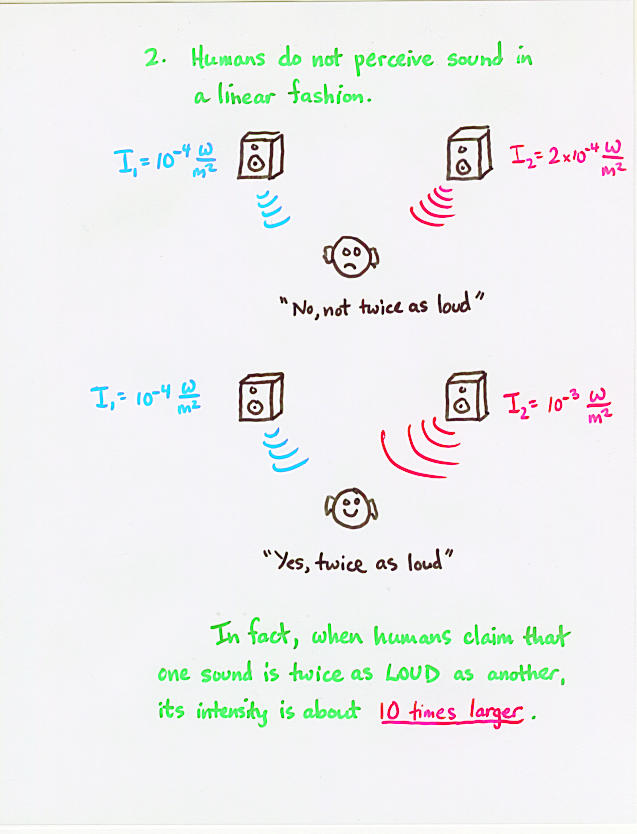 2. Humans do not perceive sound in
a linear fashion.
I₁ = 10⁻⁴ W/m²
I₂ = 2×10⁻⁴ W/m²
"No, not twice as loud"
I₁ = 10⁻⁴ W/m²
I₂ = 10⁻³ W/m²
"Yes, twice as loud"
In fact, when humans claim that
one sound is twice as LOUD as another,
its intensity is about 10 times larger.